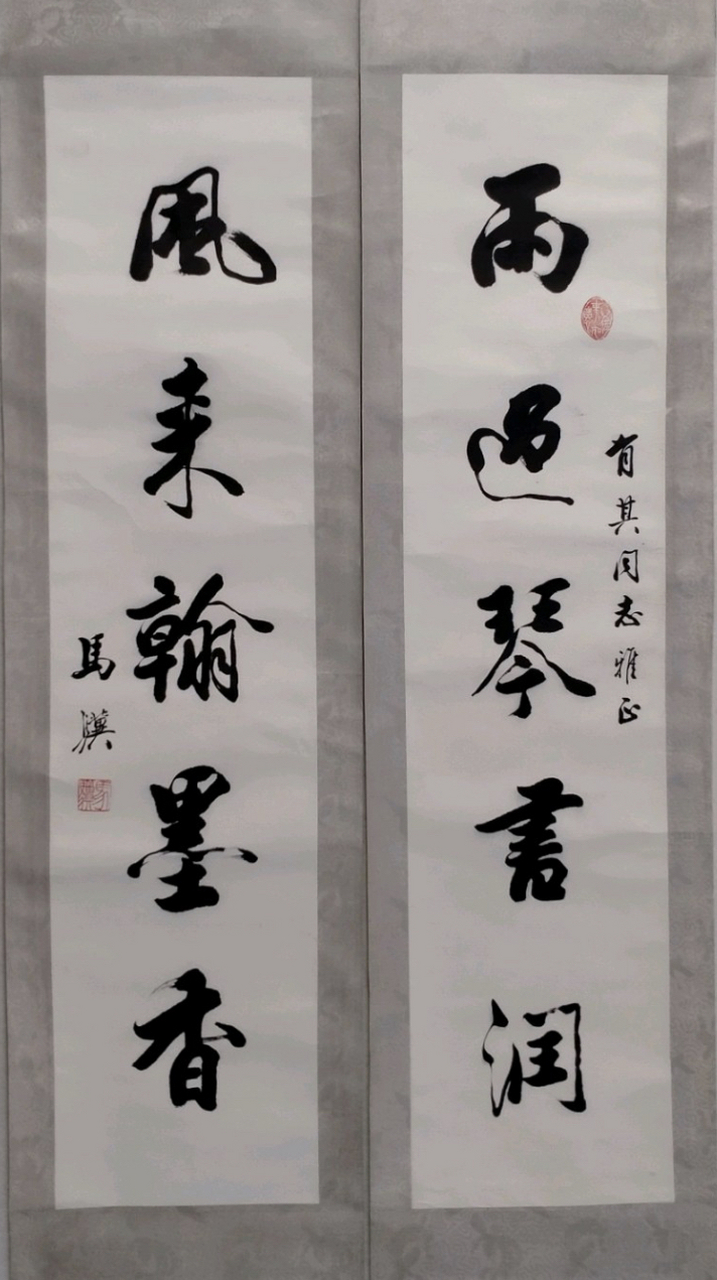 雨過琴書潤
肖其同志雅正
風来翰墨香
馬